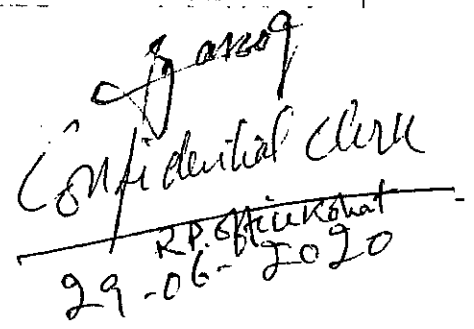 Confidential Clerk
R.P. Office Kohat
29-06-2020